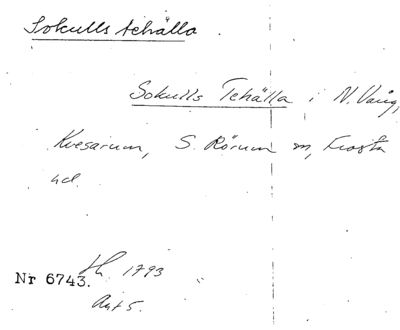 Sokulls tehälla.
Sokulls Tehälla i N. Vång,
Kvesarum, S. Rörum sn, Frosta
hd.
Nr 6743. Lh. 1793
Akt 5.